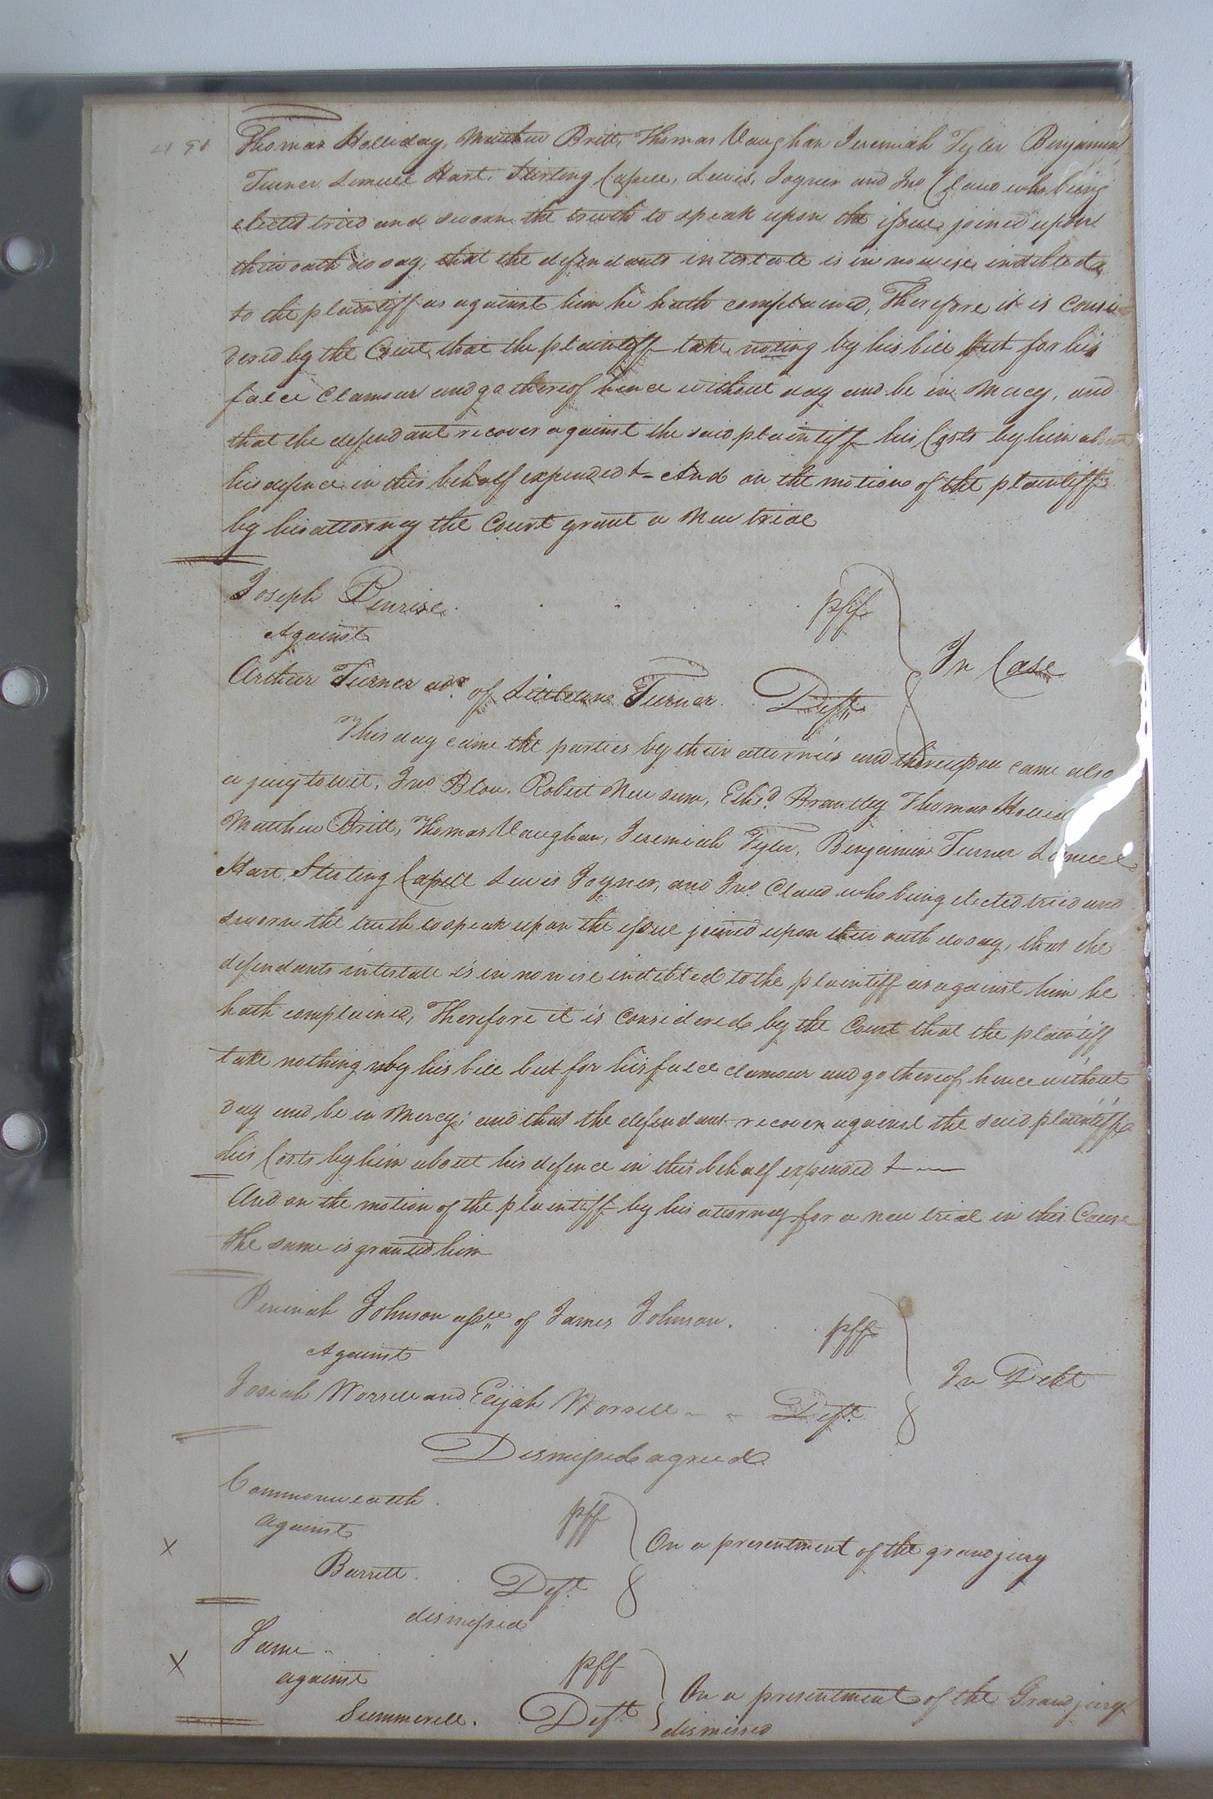 Thomas Holliday, Matthew Britt, Thomas Vaughan Jeremiah Tyler Benjamin
Turner Lemuel Hart, Stirling Capell, Lewis, Joyner and Jno Claud who being
elected tried and sworn the truth to speak upon the issue joined upon
their oath do say, that the defendants intestate is in nowise indebted
to the plaintiff as against him he hath complained, Therefore it is Consi
dered by the Court that the plaintiff take noting by his bill but for his
false Clamour and go thereof hence without day and be in Mercy, and
that the defendant recover against the said plaintiff his Costs by him about
his defence in this behalf expended &- And on the motion of the plaintiff
by his attorney the Court grant a New trial
Joseph Penrise pff
Against In Case
Arthur Turner adr. of Littleton Turner Deft.
This day came the parties by their attornies and thereupon came also
a jury to wit, Jno Blow. Robert Newsum, Ethd. Brantley Thomas Hollid
Matthew Britt, Thomas Vaughan, Jeremiah Tyler, Benjamin Turner Lemuel
Hart, Stirling Capell Lewis Joyner, and Jno. Claud who being elected tried and
sworn the truth to speak upon the issue joined upon their oath do say, that the
defendants intestate is in nowise indebted to the plaintiff as against him he
hath complained, Therefore it is Considered by the Court that the plaintiff
take nothing by his bill but for his false clamour and go thereof hence without
Day and be in Mercy; and that the defendant recover against the said plaintiff
his Costs by him about his defence in this behalf expended &
And on the motion of the plaintiff by his attorney for a new trial in this Cause
the same is granted him
Johnson assee. of James Johnson. pff
Against In Debt
Josiah Worrell and Elijah Worrell Deft.
Dismissed agreed
Commonwealth pff
against On a presentment of the grand jury
Barrett. Deft.
dismissed
x
Same pff
against On a presentment of the Grand jury
Summerell. Deft. dismissed
x